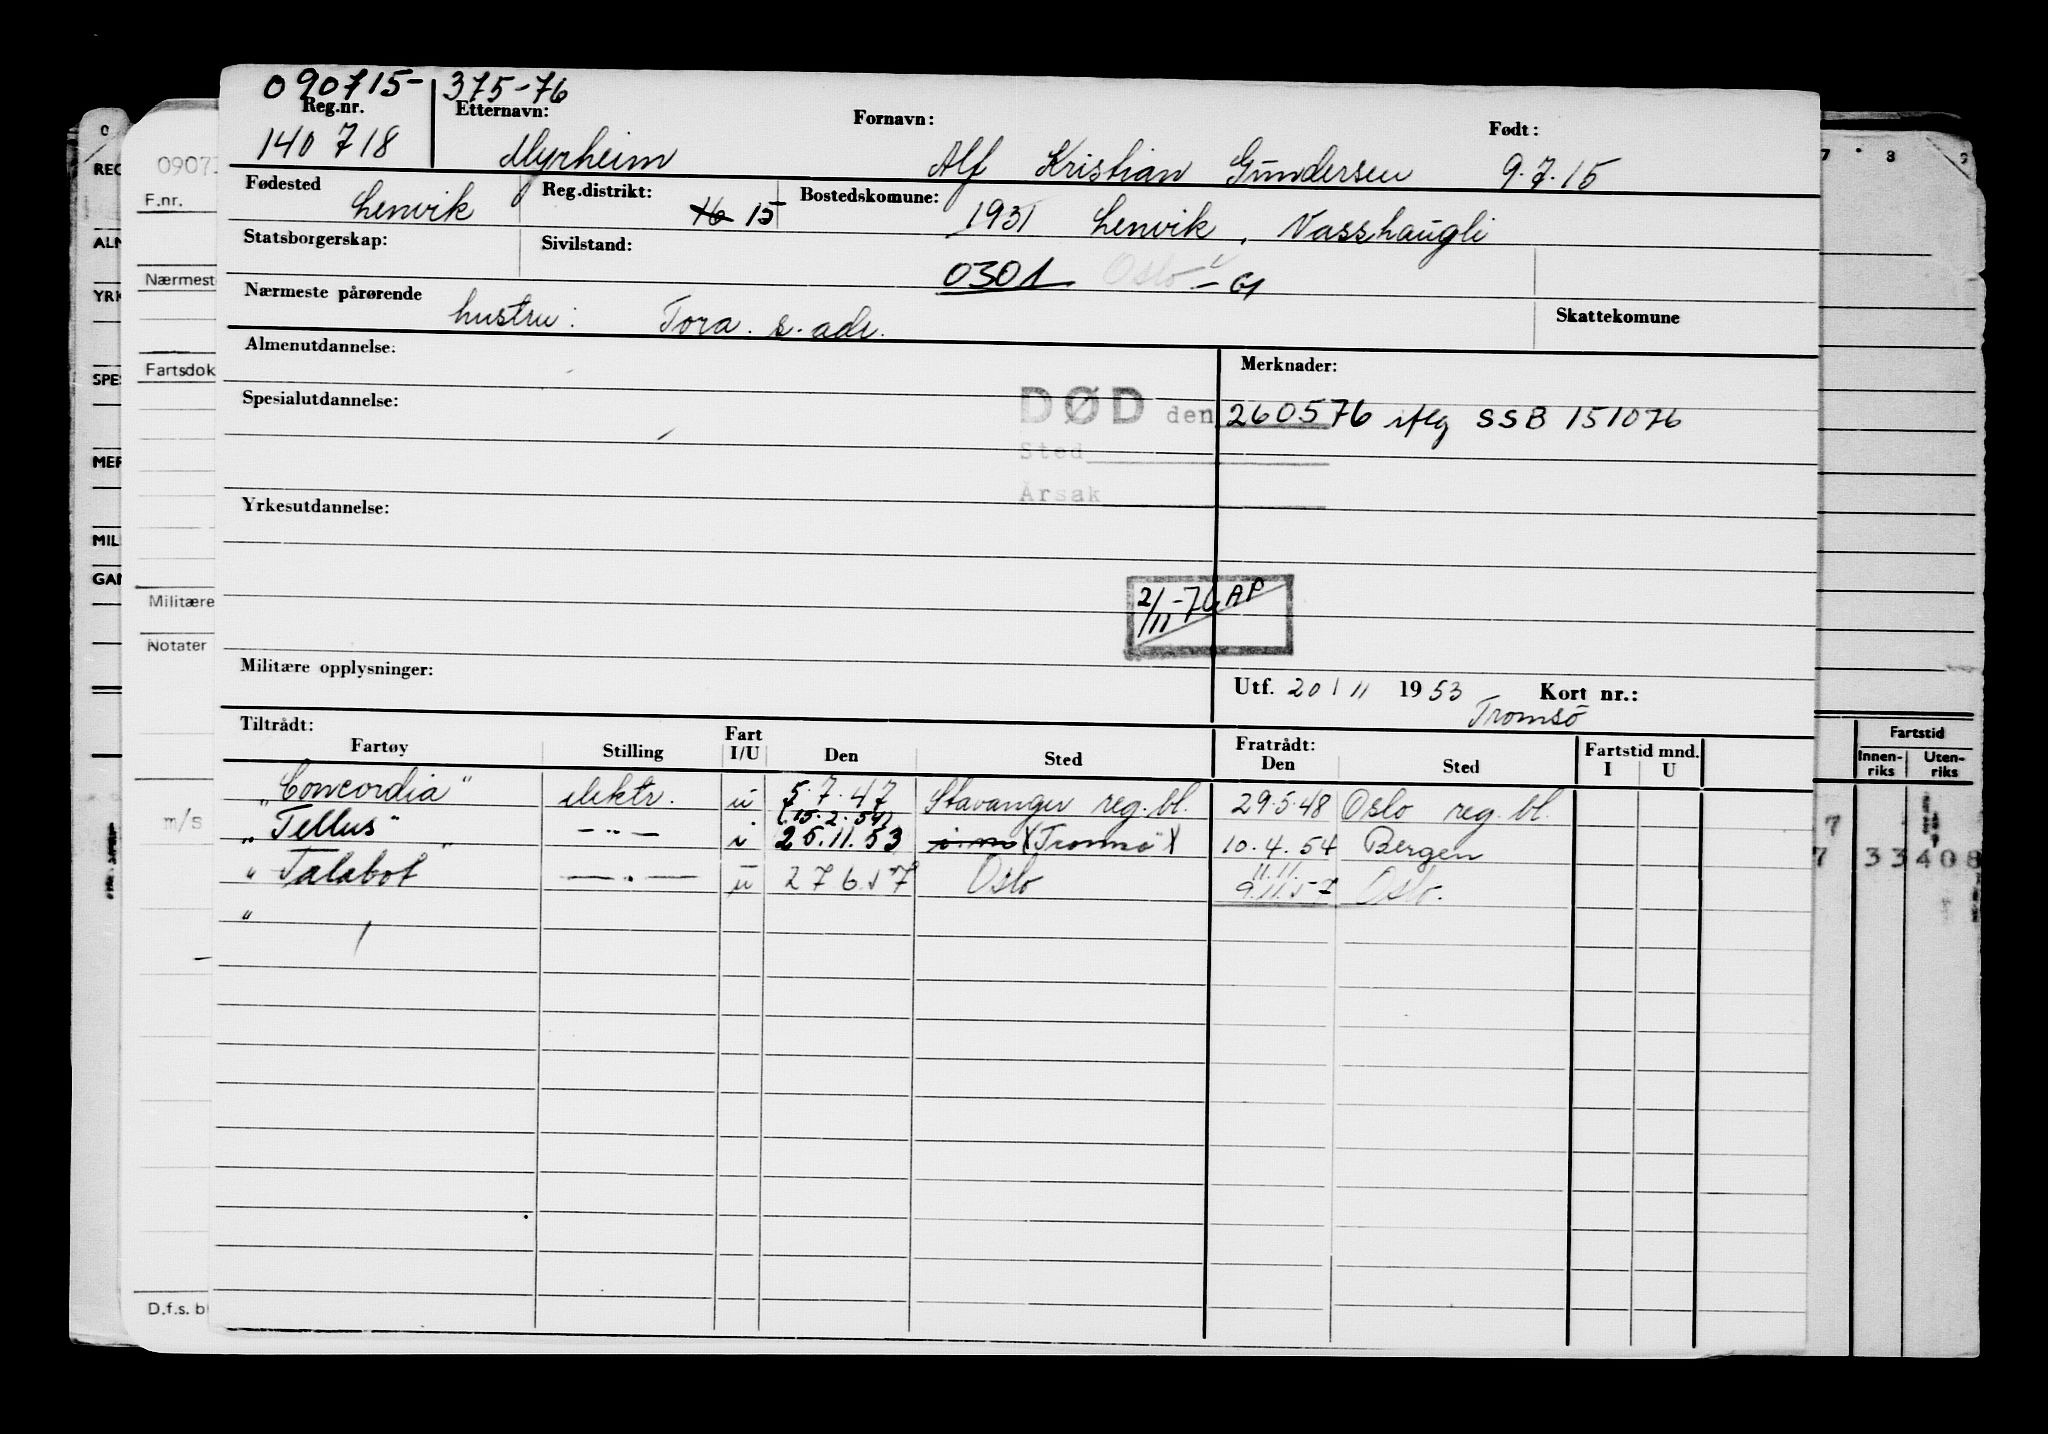 090715- 375-76
Reg.nr. Etternavn: Fornavn: Født:
140 718 Myrheim Alf Kristian Gundersen 9.7.15
Fødested Reg.distrikt: Bostedskomune:
Lenvik 16 15 1931 Lenvik, Vasshaugli
Statsborgerskap: Sivilstand:
0301 Oslo
Nærmeste pårørende Skattekomune
hustru: Tora. s. adr.
Almenutdannelse: Merknader:
Spesialutdannelse: DØD den 260576 iflg SSB 151076
Sted
Årsak
Yrkesutdannelse:
2/11-76 AP
Militære opplysninger: Utf. 20/11 1953 Kort nr.:
Tromsö
Tiltrådt: Fratrådt: Fartstid mnd.
Fartøy Stilling Fart I/U Den Sted Den Sted I U
"Concordia" elektr. u 5.7.47 Stavanger reg. bl. 29.5.48 Oslo reg. bl.
(15.2.54)
"Tellus" -"- i 25.11.53 i.m (Tromsö) 10.4.54 Bergen
11.11.
"Talabot" u 27 6.57 Oslo 9.11.57 Oslo.
"
0
REG
ALM
YRK
SPES
MER
MIL
GAN
0907
F.nr.
Nærmest
Fartsdok
Militære
Notater
m/s
D.f.s. bl
7 8 9
Fartstid
Innen-riks Uten-riks
7
7 33 408